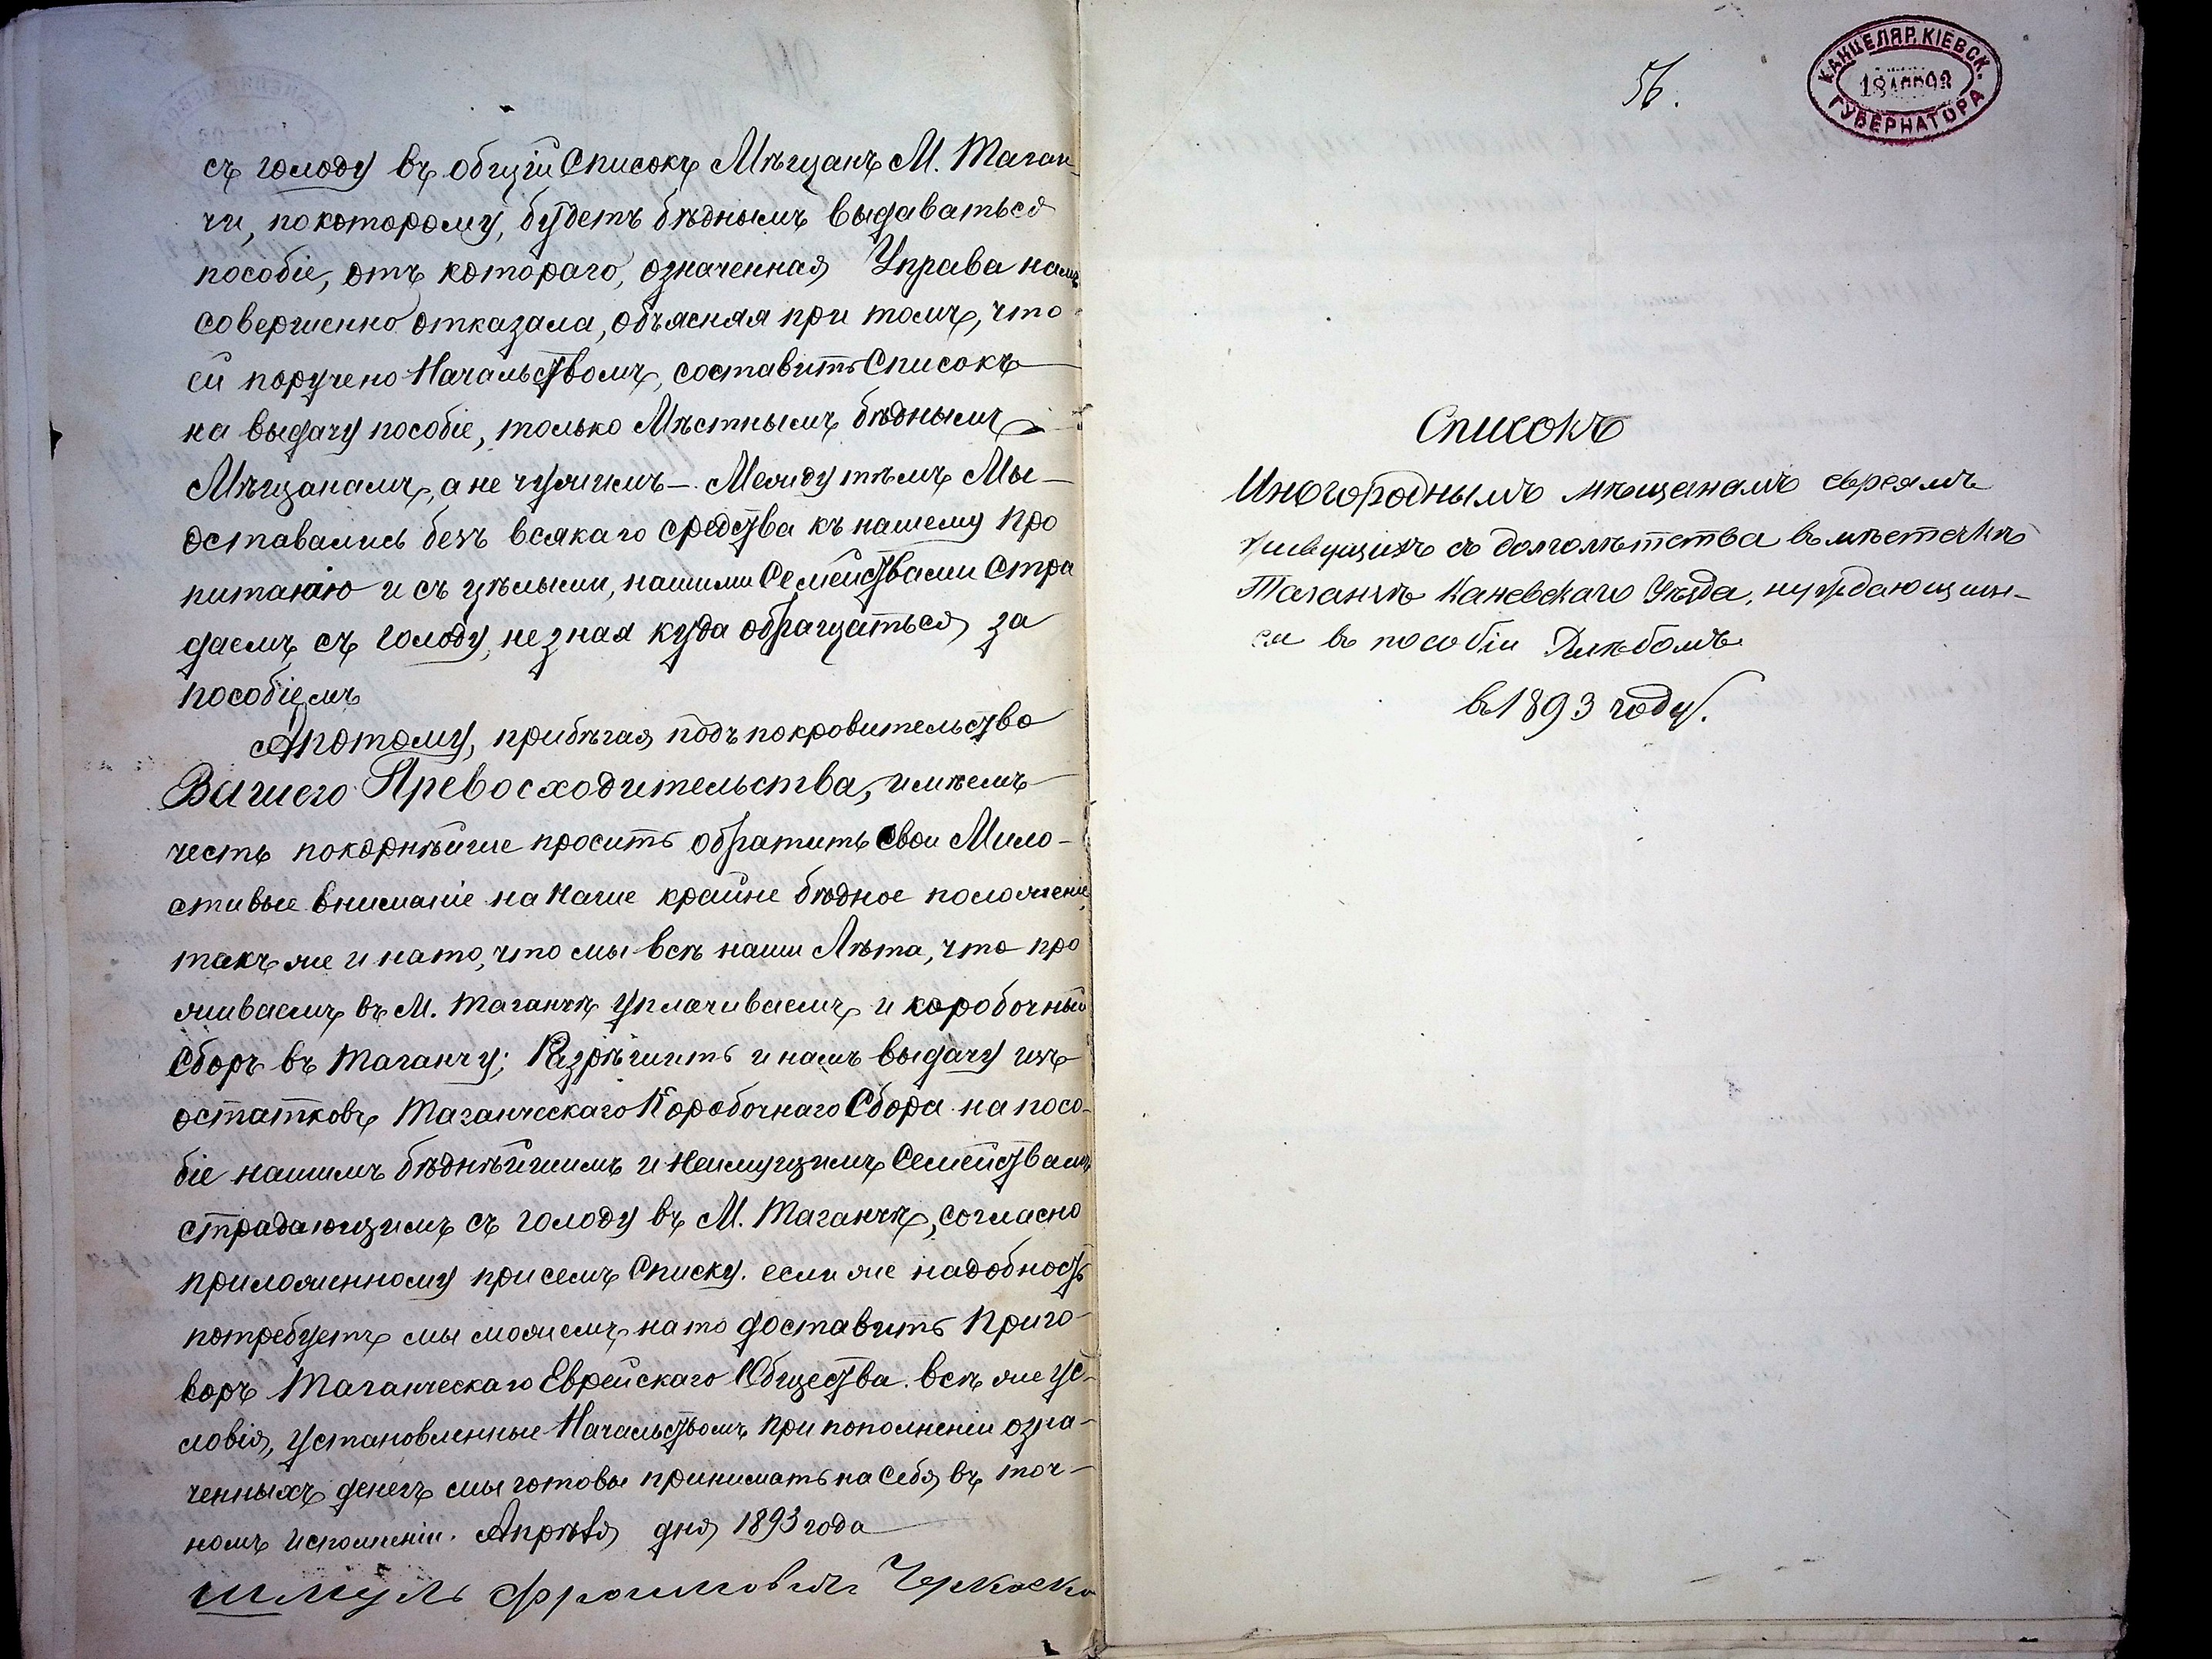 съ голоду въ общій Списокъ Мѣщанъ М. Таган-
чи, по которому, будетъ бѣднымъ выдаваться
пособіе, отъ котораго, означенная Управа намъ
совершенно отказала, объясняя при томъ, что
ей поручено Начальствомъ, составить Списокъ
на выдачу пособіе, только Мѣстнымъ бѣднымъ
Мѣщанамъ, а не чужимъ – Между тѣмъ Мы –
оставались безъ всякаго средства къ нашему про
питанію и съ цѣлыми, нашими Семействами Стра
даемъ съ голоду, не зная куда обращаться за
пособіемъ
А потому, прибѣгая подъ покровительство
Вашего Превосходительства, имѣемъ
честь покорнѣйше просить обратить свои Мило-
стивые вниманіе на наше крайне бѣдное положеніе,
такъ же и на то, что мы всѣ наши Лѣта, что про
живаемъ въ М. Таганчѣ уплачиваемъ и коробочный
Сборъ въ Таганчу; Разрѣшить и намъ выдачу изъ
остатковъ Таганческаго Коробочнаго Сбора на посо-
біе нашимъ бѣднѣйшимъ и Неимущимъ Семействамъ
страдающимъ съ голоду въ М. Таганчѣ, согласно
приложенному при семъ Списку. если же надобность
потребуетъ мы можемъ на то доставить Приго-
воръ Таганческаго Еврейскаго Общества. всѣ же ус-
ловія, установленные Начальствомъ при пополненіи озна-
ченныхъ денегъ мы готовы принимать на Себя въ точ-
номъ исполненіи. Апрѣля дня 1893 года
Шмуль Фроимовичъ
56.
КАНЦЕЛЯР. КІЕВСК.
ГУБЕРНАТОРА
Списокъ
Иногороднымъ мѣщанамъ евреямъ
живущихъ съ долголѣтства въ мѣстечкѣ
Таганчѣ Каневскаго Уѣзда, нуждающим-
ся въ пособіи Хлѣбомъ
въ 1893 году.